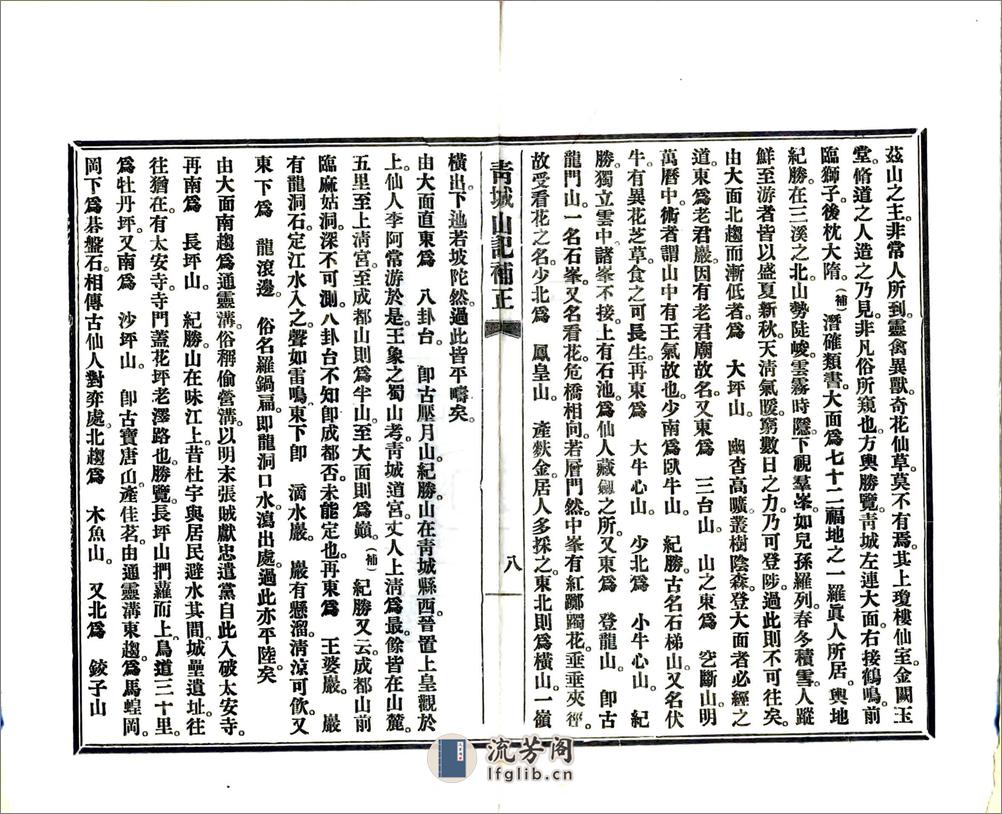 茲山之主。非常人所到。靈禽異獸。奇花仙草。莫不有焉。其上瓊樓仙室。金闕玉
堂。脩道之人造之乃見。非凡俗所窺也。方輿勝覽。靑城左連大面。右接鶴鳴。前
臨獅子。後枕大隋。(補)潛確類書。大面爲七十二福地之一。羅眞人所居。輿地
紀勝。在三溪之北。山勢陡峻。雲霧時隱。下視羣峯。如兒孫羅列。春冬積雪。人蹤
鮮至。游者皆以盛夏新秋。天淸氣暖。窮數日之力。乃可登陟。過此則不可往矣。
由大面北趨而漸低者。爲 大坪山。 幽杳高曠。叢樹陰森。登大面者必經之
道。東爲老君巖。因有老君廟故名。又東爲 三台山。 山之東爲 空斷山。明
萬曆中。術者謂山中有王氣故也。少南爲臥牛山。 紀勝古名石梯山。又名伏
牛。有異花芝草。食之可長生。再東爲 大牛心山。 少北爲 小牛心山。 紀
勝。獨立雲中。諸峯不接。上有石池。爲仙人藏劍之所。又東爲 登龍山。 卽古
龍門山。一名石峯。又名看花。危橋相向。若層門然。中峯有紅躑躅花。垂垂夾徑。
故受看花之名。少北爲 鳳皇山。 產麩金。居人多採之。東北則爲橫山。一嶺
靑城山記補正
八
橫出。下迆若坡陀然。過此皆平疇矣。
由大面直東爲 八卦台。 卽古壓月山。紀勝。山在靑城縣西。晉置上皇觀於
上。仙人李阿常游於是。王象之蜀山考。靑城道宮。丈人上淸爲最。餘皆在山麓。
五里至上淸宮。至成都山則爲半山。至大面則爲巔。(補)紀勝又云。成都山前
臨麻姑洞。深不可測。八卦台不知卽成都否。未能定也。再東爲 王婆巖。 巖
有龍洞石。定江水入之。聲如雷鳴。東下卽 滴水巖。 巖有懸溜。淸涼可飮。又
東下爲 龍滾邊。 俗名羅鍋扁。卽龍洞口水瀉出處。過此亦平陸矣。
由大面南趨。爲通靈溝。俗稱偷營溝。以明末張賊獻忠遣黨自此入破太安寺。
再南爲 長坪山。 紀勝。山在味江上。昔杜宇與居民避水其間。城壘遺址。往
往猶在。有太安寺。寺門蓋花坪老澤路也。勝覽。長坪山捫蘿而上。鳥道三十里。
爲牡丹坪。又南爲 沙坪山。 卽古寶唐山。產佳茗。由通靈溝東趨爲馬蝗岡。
岡下爲棊盤石。相傳古仙人對弈處。北趨爲 木魚山。 又北爲 鉸子山
流芳阁
lfglib.cn